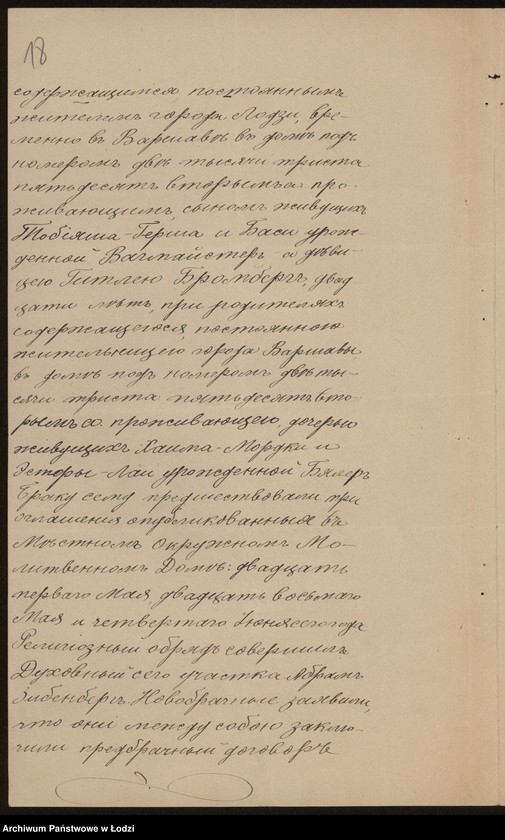 18
содержащимся постояннымъ
жителемъ города Лодзи, вре-
менно въ Варшавѣ въ домѣ подъ
номеромъ двѣ тысячи триста
пятьдесятъ вторымъ а. про-
живающимъ, сыномъ живущихъ
Тобіяша-Герша и Баси урож-
денной Вагмайстеръ – и дѣви-
цею Гитлею Бромбергъ, двад-
цати лѣтъ, при родителяхъ
содержащегося, постоянною
жительницею города Варшавы
въ домѣ подъ номеромъ двѣ ты-
сячи триста пятьдесятъ вто-
рымъ а. проживающею, дочерью
живущихъ Хаима-Мордки и
Эстеры-Лаи урожденной Бялеръ
Браку сему предшествовали три
оглашенія опубликованныя въ
Мѣстномъ Окружномъ Мо-
литвенномъ Домѣ: двадцать
перваго Мая, двадцать восьмаго
Мая и четвертаго Іюня сего года
Религіозный обрядъ совершилъ
Духовный сего участка Абрамъ
Новобрачные заявили,
что они между собою заклю-
чили предбрачный договоръ
Archiwum Państwowe w Łodzi